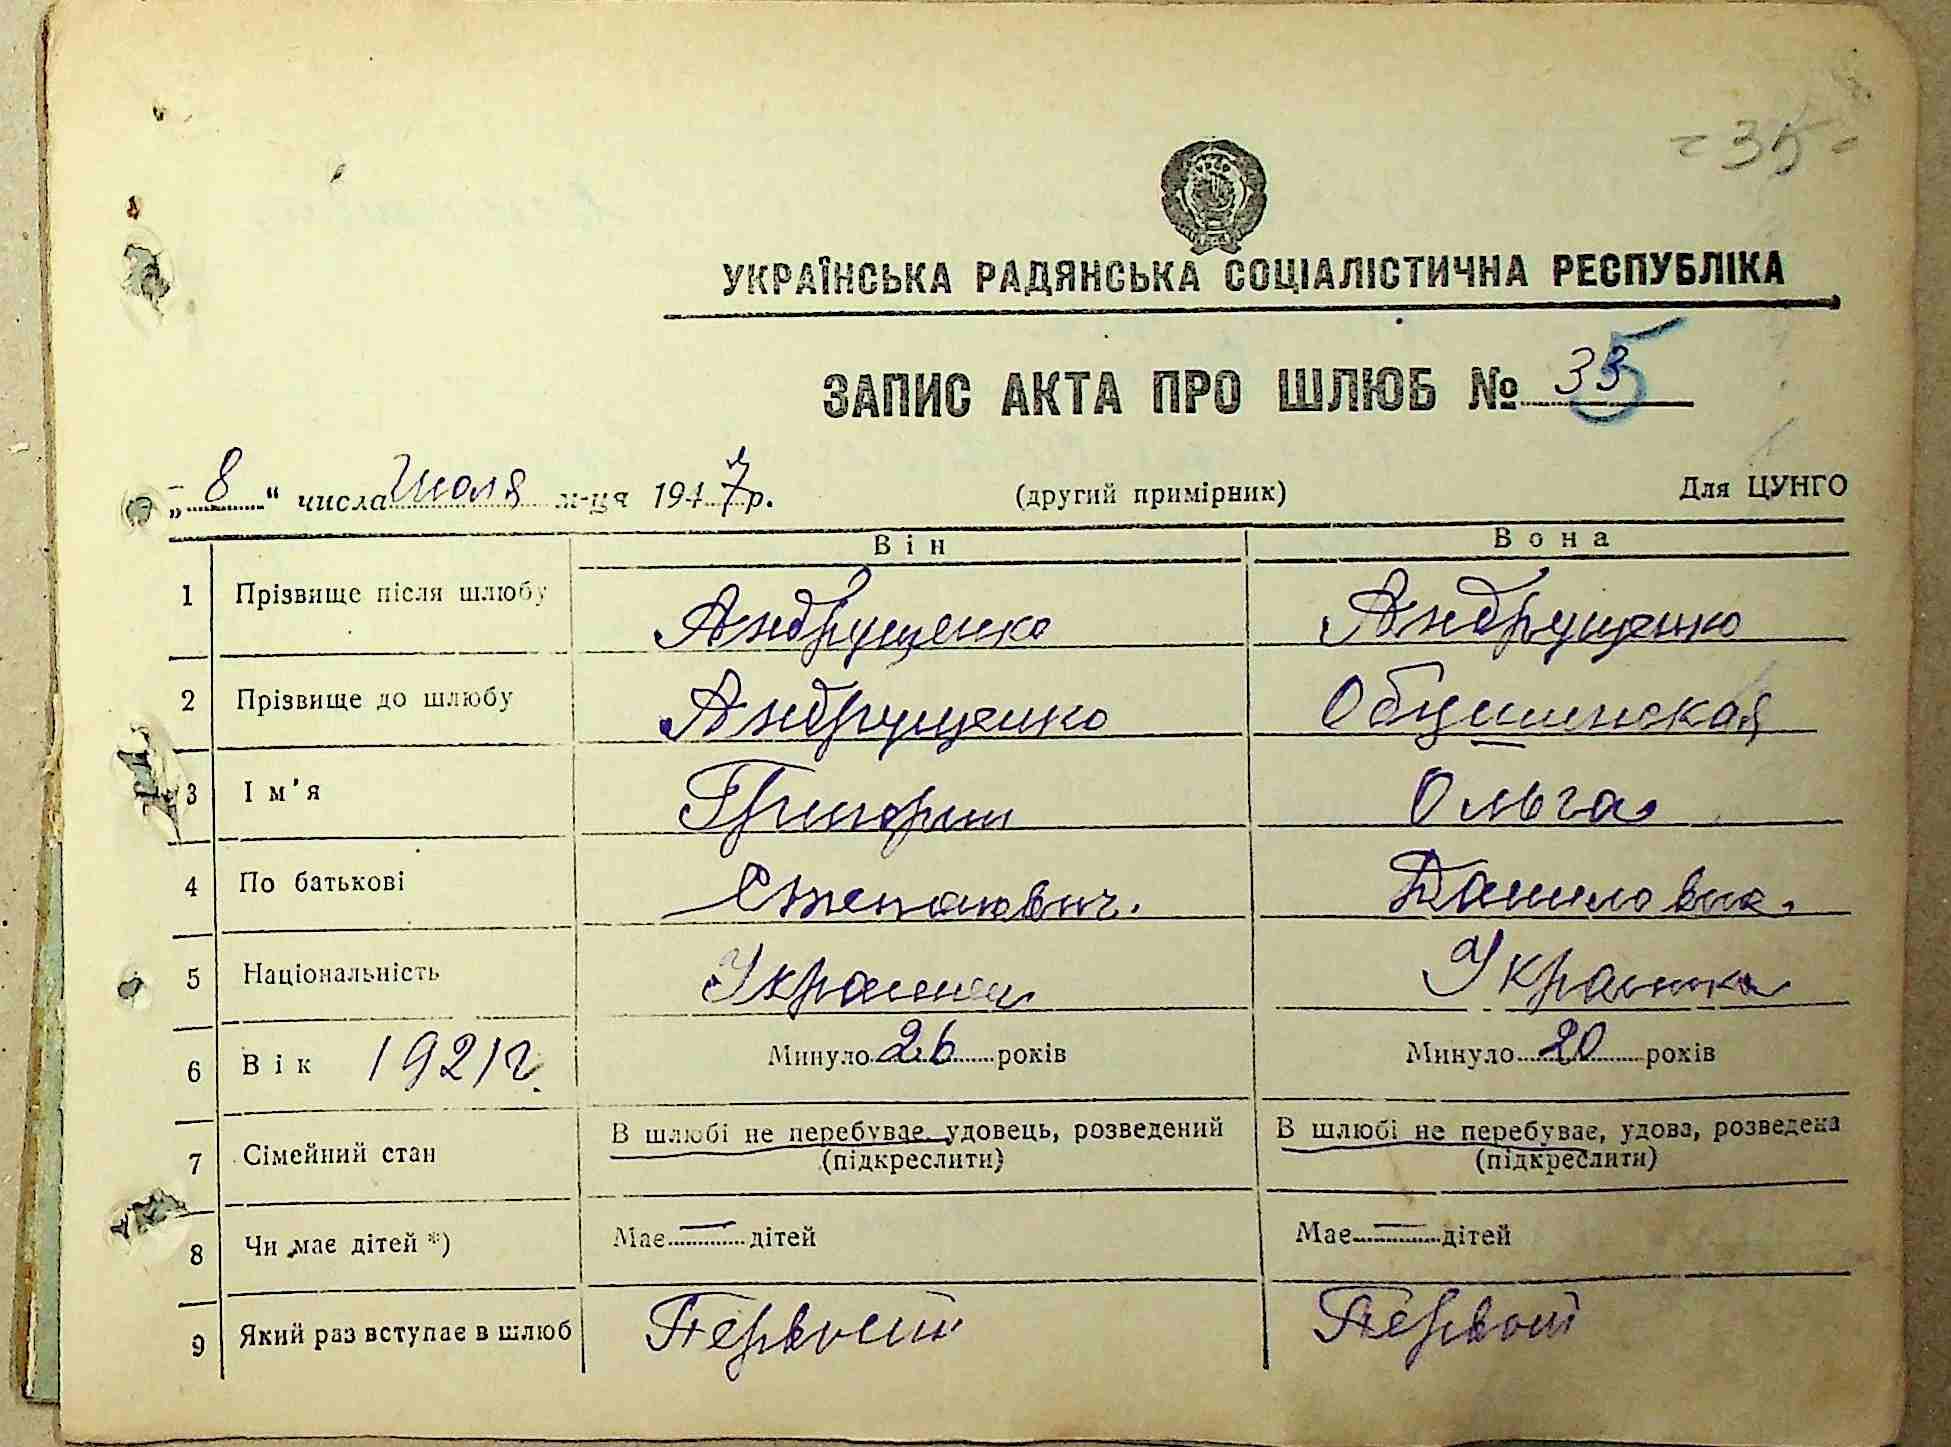 - 35 -
УКРАЇНСЬКА РАДЯНСЬКА СОЦІАЛІСТИЧНА РЕСПУБЛІКА
ЗАПИС АКТА ПРО ШЛЮБ № 335
„8“ числа Июля м-ця 1947 р. (другий примірник) Для ЦУНГО
Він Вона
1 Прізвище після шлюбу Андрущенко Андрущенко
2 Прізвище до шлюбу Андрущенко Обушинская
3 Ім'я Григорий Ольга
4 По батькові Степанович. Даниловна.
5 Національність Украинец Украинка
6 Вік 1921г. Минуло 26 років Минуло 20 років
7 Сімейний стан В шлюбі не перебуває, удовець, розведений В шлюбі не перебуває, удова, розведена
(підкреслити) (підкреслити)
8 Чи має дітей *) Має — дітей Має — дітей
9 Який раз вступає в шлюб Первый Первый